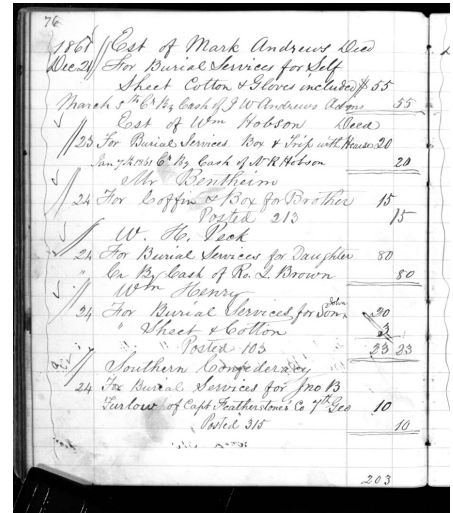 76
1861 // Est of Mark Andrews Decd
Dec 21 // For Burial Services for Self
Sheet Cotton & Gloves included $ 55
March 5th Cr By Cash of J W Andrews Admr 55
// Est of Wm Hobson Decd
23 For Burial Services Box & Trip with Hearse 20
Jan 7th 1861 Cr By Cash of N R Hobson 20
// Mr Bentheim
24 For Coffin & Box for Brother 15
Posted 213 15
// W. H. Peck
24 For Burial Services for Daughter 80
" Cr By Cash of Ro. L Brown 80
// Wm Henry
24 For Burial Services for Son John 20
" Sheet & Cotton 3
Posted 103 23 23
// Southern Confederacy
24 For Burial Services for Jno B
Turlow of Capt Featherstone's Co 7th Geo 10
Posted 315 10
203